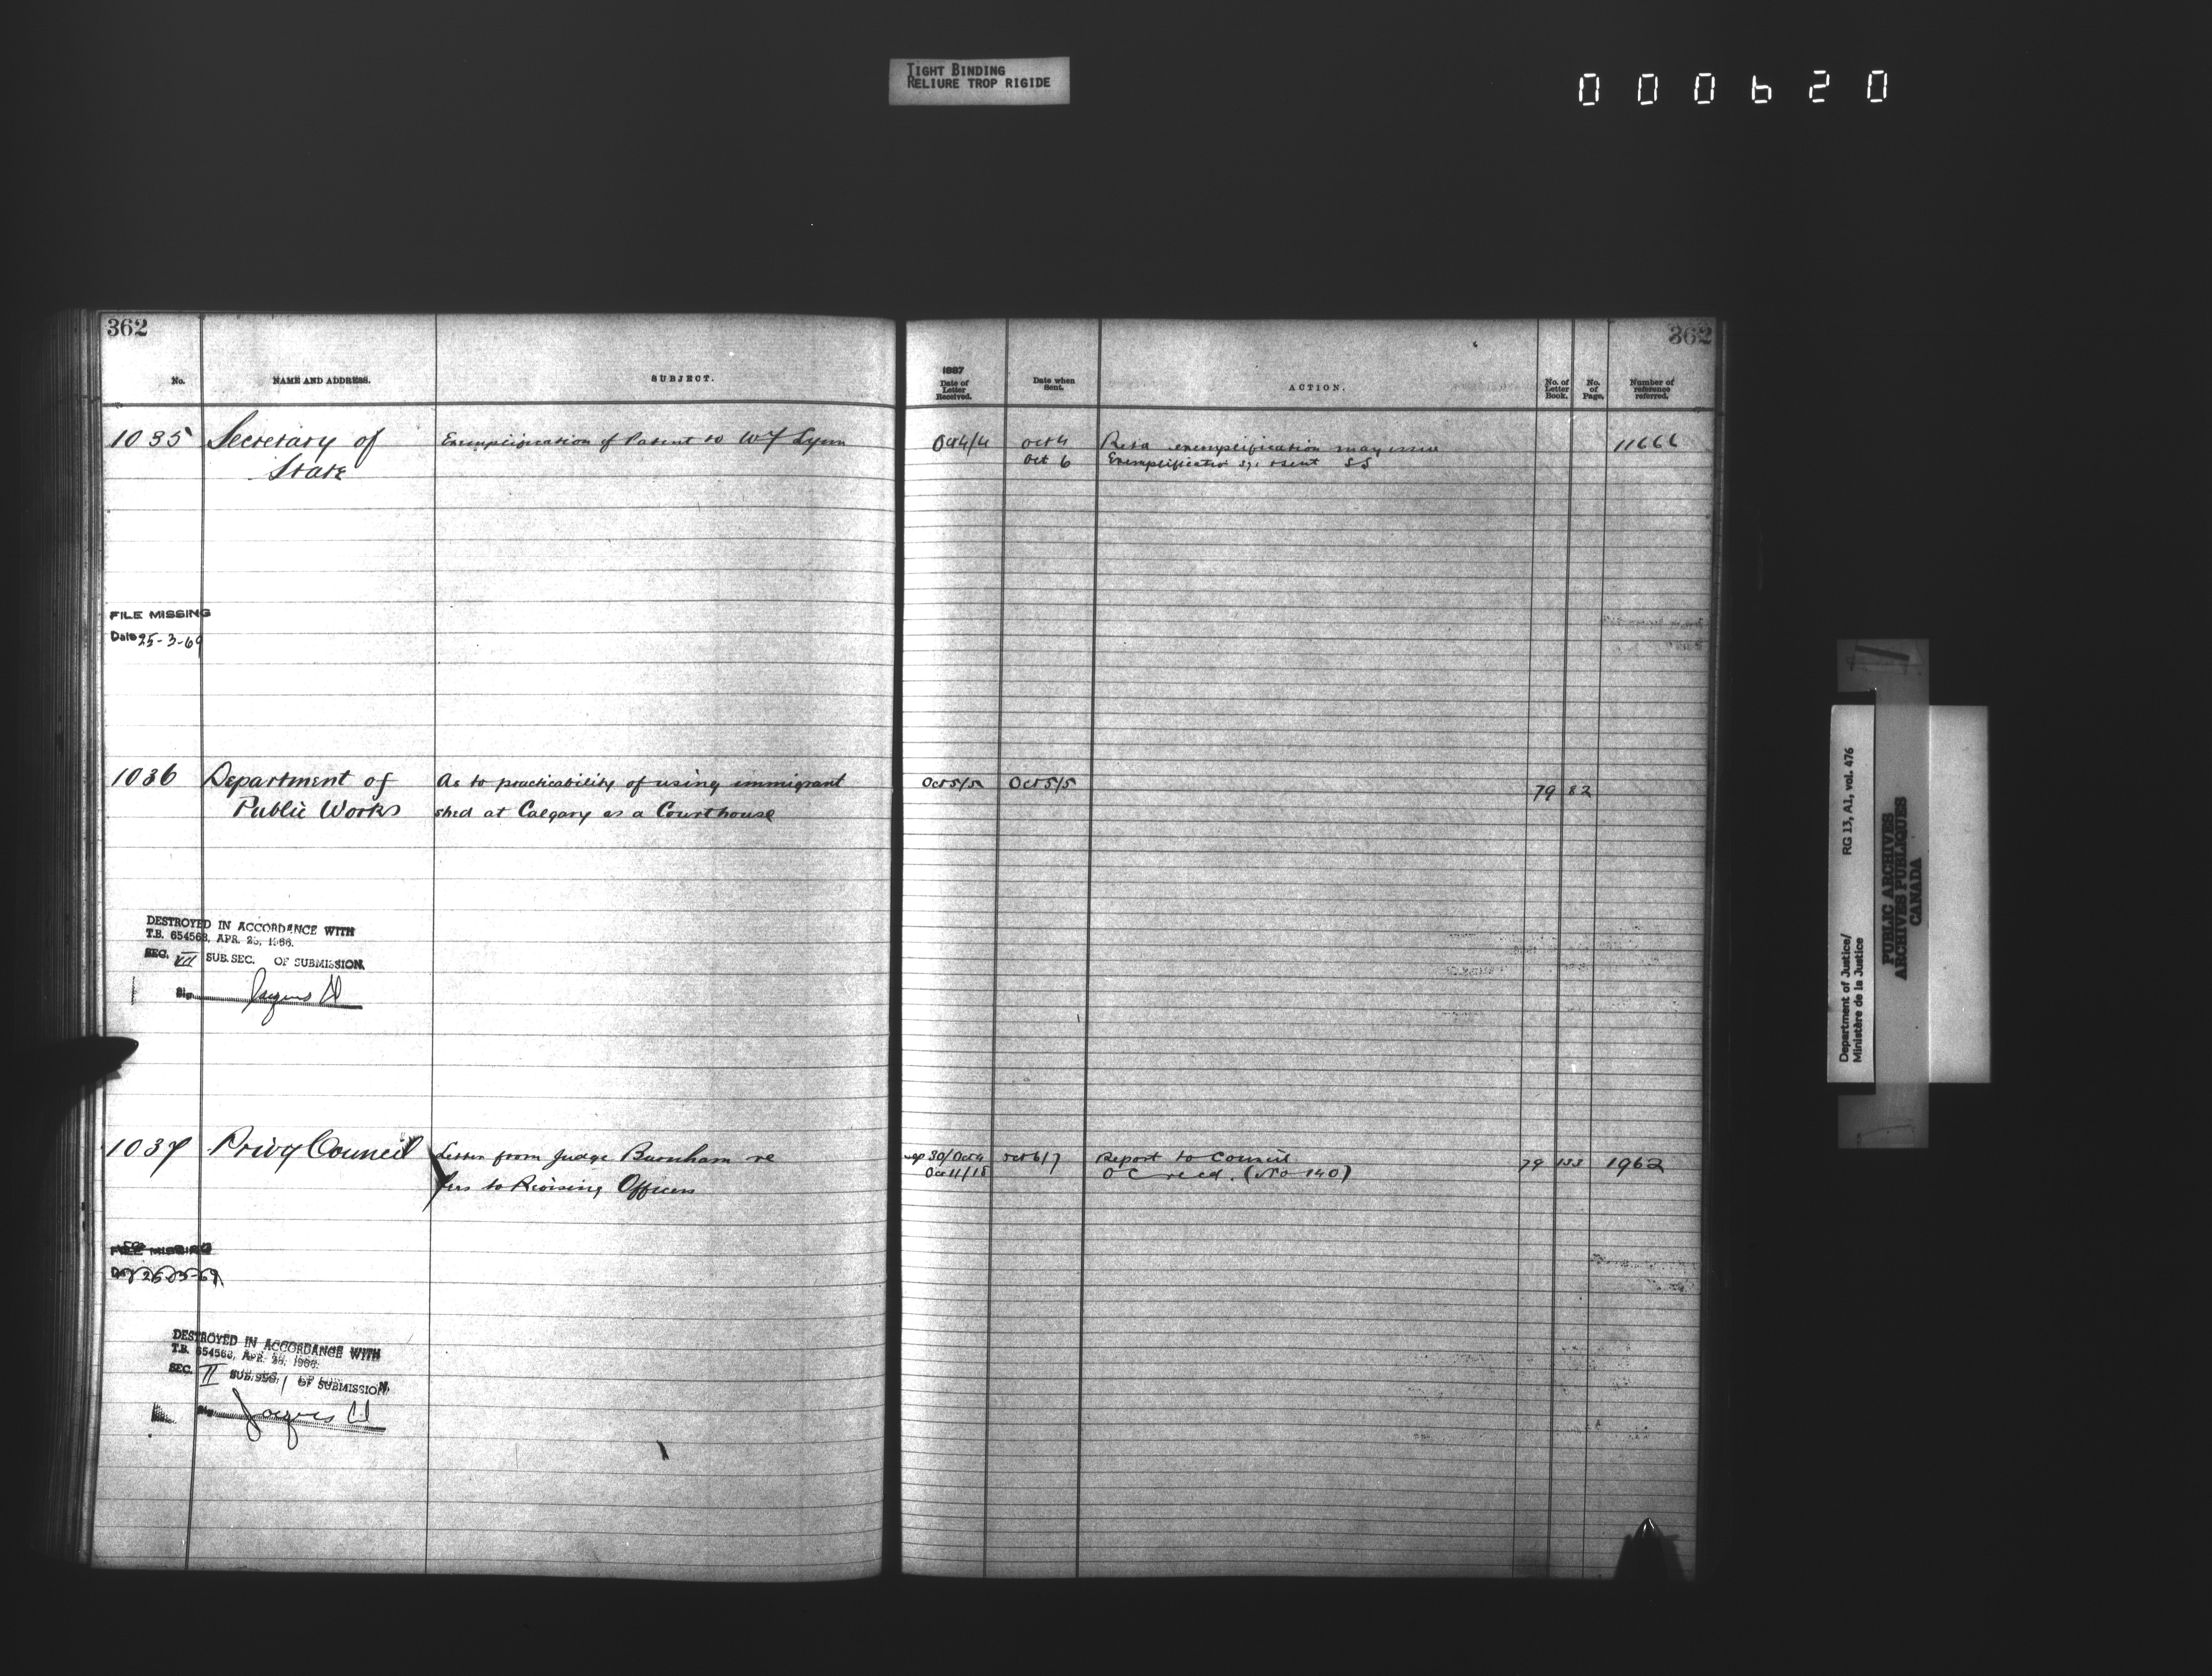 TIGHT BINDING
RELIURE TROP RIGIDE
000620
362
No.
NAME AND ADDRESS.
SUBJECT.
1035 Secretary of
State
Exemplification of Patent to W F Lynn
FILE MISSING
Date 25-3-69
1036 Department of
Public Works
As to practicability of using immigrant
shed at Calgary as a Courthouse
DESTROYED IN ACCORDANCE WITH
T.B. 654568, APR. 25, 1966.
SEC. VII SUB.SEC. OF SUBMISSION.
Sig. Jacques
1037 Privy Council
Letter from Judge Burnham re
fees to Revising Officers
FILE MISSING
25-3-69
DESTROYED IN ACCORDANCE WITH
T.B. 654568, APR. 25, 1966.
SEC. II SUB.SEC. 1 OF SUBMISSION.
Sig. Jacques
362
1887
Date of
Letter
Received.
Date when
Sent.
ACTION.
No. of
Letter
Book.
No.
of
Page.
Number of
reference
referred.
Oct 4/4 Oct 4 exemplification may issue 11666
Oct 6 SS
Oct 5/5 Oct 5/5 79 82
Sep 30/Oct 4 Oct 6/7 Report to Council 79 133 1962
Oct 11/18 O C recd. (No 140)
Department of Justice/
Ministère de la Justice
RG 13, A1, vol. 476
PUBLIC ARCHIVES
ARCHIVES PUBLIQUES
CANADA